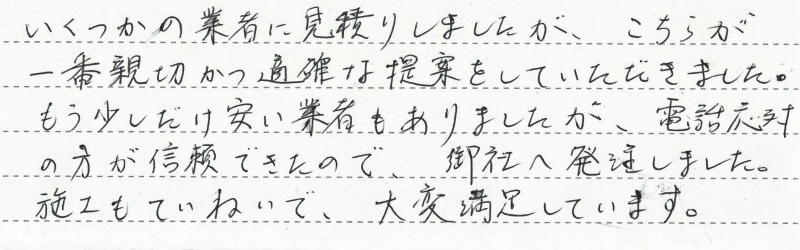 いくつかの業者に見積りしましたが、こちらが
一番親切かつ適確な提案をしていただきました。
もう少しだけ安い業者もありましたが、電話応対
の方が信頼できたので、御社へ発注しました。
施工もていねいで、大変満足しています。